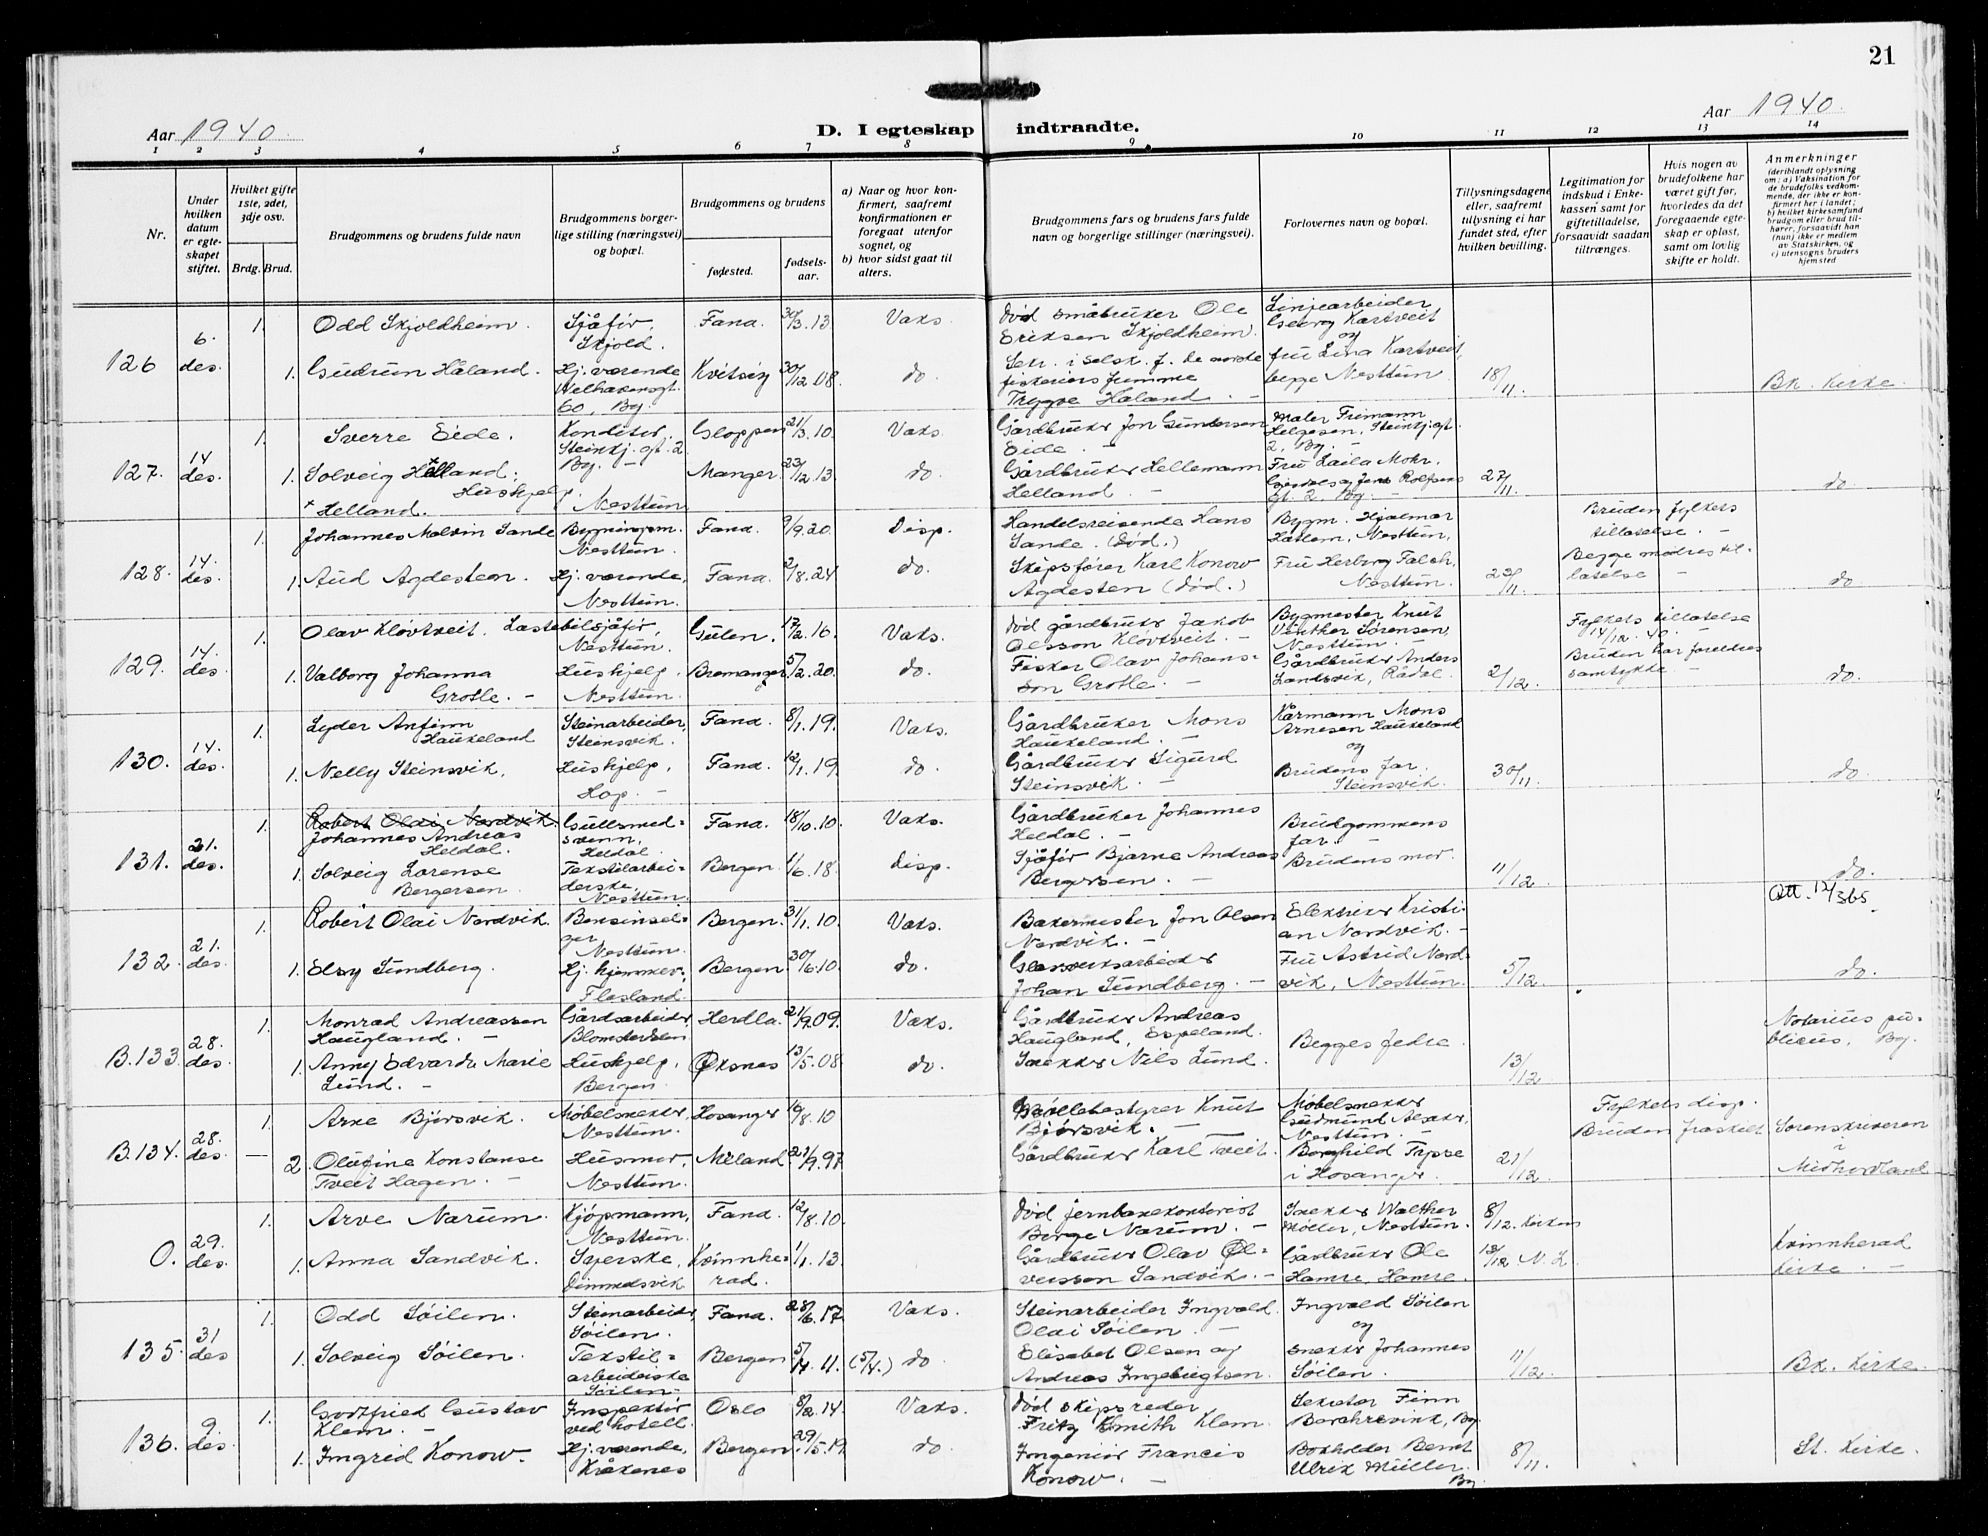 21
Aar 1940.
D. I egteskap indtraadte.
Aar 1940.
1 2 3 4 5 6 7 8 9 10 11 12 13 14
Nr.
Under hvilken datum er egteskapet stiftet.
Hvilket gifte 1ste, 2det, 3dje osv.
Brdg. Brud.
Brudgommens og brudens fulde navn
Brudgommens borgerlige stilling (næringsvei) og bopæl.
Brudgommens og brudens
fødested.
fødselsaar.
a) Naar og hvor konfirmert, saafremt konfirmationen er foregaat utenfor sognet, og
b) hvor sidst gaat til alters.
Brudgommens fars og brudens fars fulde navn og borgerlige stillinger (næringsvei).
Forlovernes navn og bopæl.
Tillysningsdagene eller, saafremt tillysning ei har fundet sted, efter hvilken bevilling.
Legitimation for indskud i Enkekassen samt for giftetilladelse, forsaavidt saadan tiltrænges.
Hvis nogen av brudefolkene har været gift før, hvorledes da det foregaaende egteskap er opløst, samt om lovlig skifte er holdt.
Anmerkninger (deriblandt oplysning om: a) Vaksination for de brudefolks vedkommende, der ikke er konfirmert her i landet; b) hvilket kirkesamfund brudgom eller brud tilhører, forsaavidt han (hun) ikke er medlem av Statskirken, og c) utensogns bruders hjemsted
126 6. des. 1. Odd Skjoldheim. Sjåfør, Skjold. Fana. 30/3.13 Vaks. Død småbruker Ole Eriksen Skjoldheim. Linjearbeider Georg Kartveit og
1. Gudrun Håland. Hj. værende Welhavensgt. 60, Bg. Kvitsøy 30/12.08. do. Sekr. i selsk. f. de norske fiskeriers fremme Trygve Håland. – fru Lina Kartveit, begge Nesttun. 18/11. Bk. Kirke.
127. 14 des. 1. Sverre Eide. Konditor, Steinkj. gt. 2 Bg. – Gloppen 21/3.10. Vaks. Gårdbruker Jon Gundersen Eide. – Maler Frimann Helgesen, Steinkj. gt 2, Bg. –
1. Solveig Helland. Hushjelp. Nesttun. Manger. 23/12.13 do Gårdbruker Hellemann Helland. – Fru Laila Mohr, Jens Rolfsens gt. 2, Bg. – 27/11. do.
+ Helland.
128. 14. des. 1. Johannes Malvin Sande Bygningsm. Nesttun. Fana. 9/9.20 Disp. Handelsreisende Hans Sande. (Død.) Bygm. Hjalmar Hatlem, Nesttun, Bruden fylkets tillatelse. –
1. Aud Agdesteen. Hj. værende, Nesttun. Fana. 2/8.24 do. Skipsfører Karl Konow Agdesten (Død.) Fru Herborg Falch, Nesttun. 23/11. Begge mødres tillatelse – do
129. 14. des. 1. Olav Kløvtveit. Lastebilsjåfør, Nesttun. Gulen. 17/2.16. Vaks. Død gårdbruker Jakob Olsson Kløvtveit. – Bygmester Knut Vinther Sørensen, Nesttun. – Fylkets tillatelse 14/12.40. –
1. Valborg Johanna Grotle. – Hushjelp, Nesttun. Bremanger. 5/2.20. do. Fisker Olav Johansson Grotle. – Gårdbruker Anders Landsvik, Rådal. 2/12. Bruden har foreldres samtykke – do.
130. 14. des. 1. Lyder Anfinn Haukeland Steinarbeider, Steinsvik. Fana. 8/1.19. Vaks. Gårdbruker Mons Haukeland. – Kårmann Mons Arnesen Haukeland og
1. Nelly Steinsvik, Hushjelp, Hop. – Fana. 12/1.19. do. Gårdbruker Sigurd Steinsvik. – Brudens far. Steinsvik. 30/11. do.
131. 21. des. 1. Robert Olai Nordvik. Johannes Andreas Heldal. Gullsmedsvenn, Heldal. Fana. 18/10.10. Vaks. Gårdbruker Johannes Heldal. – Brudgommens far.
1. Solveig Lorense Bergersen. Tekstilarbeiderske, Nesttun. Bergen. 1/6.18. Disp. Sjåfør Bjarne Andreas Bergersen. – Brudens mor. 11/12. do.
132. 21. des. 1. Robert Olai Nordvik. Bensinselger Nesttun. Bergen. 31/1.10. Vaks. Bakermester Jon Olsen Nordvik. – Elektriker Kristian Nordvik. – Att. 12/3 65
1. Elsy Sundberg. Hj. hjemmev., Flesland. Bergen. 30/6.10. do. Glassverksarbeider Johan Sundberg. – Fru Astrid Nordvik, Nesttun. 5/12. do.
B.133. 28. des. 1. Monrad Andreassen Haugland. – Gårdsarbeider, Blomsterdalen Herdla. 21/9.09. Vaks. Gårdbruker Andreas Haugland, Espeland. Begges fedre. Notarius publicus, Bg.
1. Anny Edvarda Marie Lund. – Hushjelp, Bergen. Øksnes 13/5.08 do. Snekker Nils Lund. 13/12.
B.134. 28. des. 1. Arne Bjørsvik. Møbelsnekker, Nesttun. Hosanger 10/8.10 Møllebestyrer Knut Bjørsvik. – Møbelsnekker Gudmund Nesttun. – Fylkets disp. Bruden fraskilt Sorenskriveren i Midhordland
— 2. Olufine Konstanse Tveit Hagen. – Husmor, Nesttun. Meland. 21/9.97. Gårdbruker Karl Tveit. Borghild i Hosanger. 21/12.
O. 29. des. 1. Arve Narum. Kjøpmann, Nesttun. Fana. 12/8.10. Død jernbanekontorist Børge Narum. – Snekker Walther Møller, Nesttun. 8/12. kirken
1. Anna Sandvik. Syerske, Dimmelsvik Kvinnherad. 1/1.13. Gårdbruker Olav Ølversson Sandvik. – Gårdbruker Ole Hamre Hamre. 13/12 N. L. Kvinnherad kirke. –
135. 31 des 1. Odd Søilen. Steinarbeider, Søilen. Fana. 28/6.17. Vaks. Steinarbeider Ingvald Olai Søilen. – Ingvald Søilen og
1. Solveig Søilen. Tekstilarbeiderske Søilen. Bergen 5/4. 11. (5/4.) do. Elisabet Olsen og Andreas Ingebrigtsen. snekker Johannes Søilen. 11/12. Bk. Kirke.
136. 9 des. 1. Gottfried Gustav Klem. – Inspektør ved hotell. Oslo 8/2.14. Vaks. Død skipsreder Fritz Smith Klem. Sekretær Finn Borchrevink, Bg.
1. Ingrid Konow. Hj. værende, Kråkenes Bergen. 29/5.19. do. Ingeniør Francis Konow. – Bokholder Bernt Ulrik Müller. Bg. 8/11. St. Kirke.